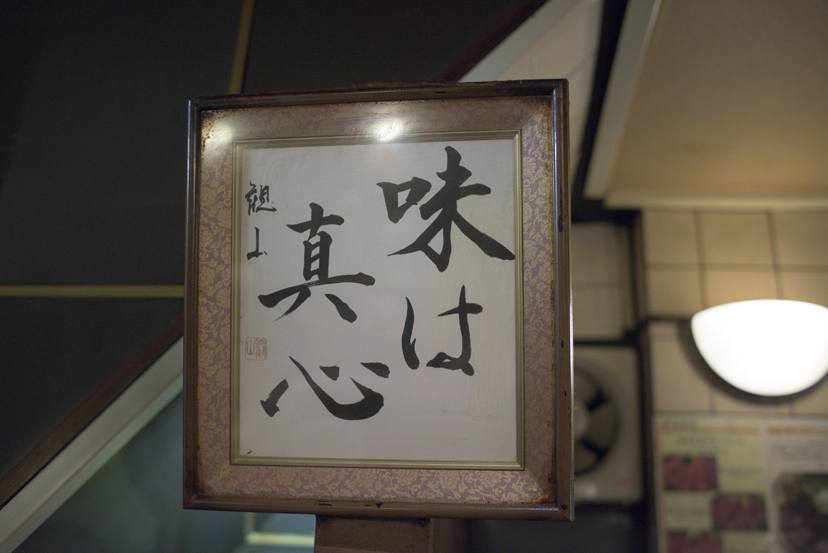 味は
真心
観山